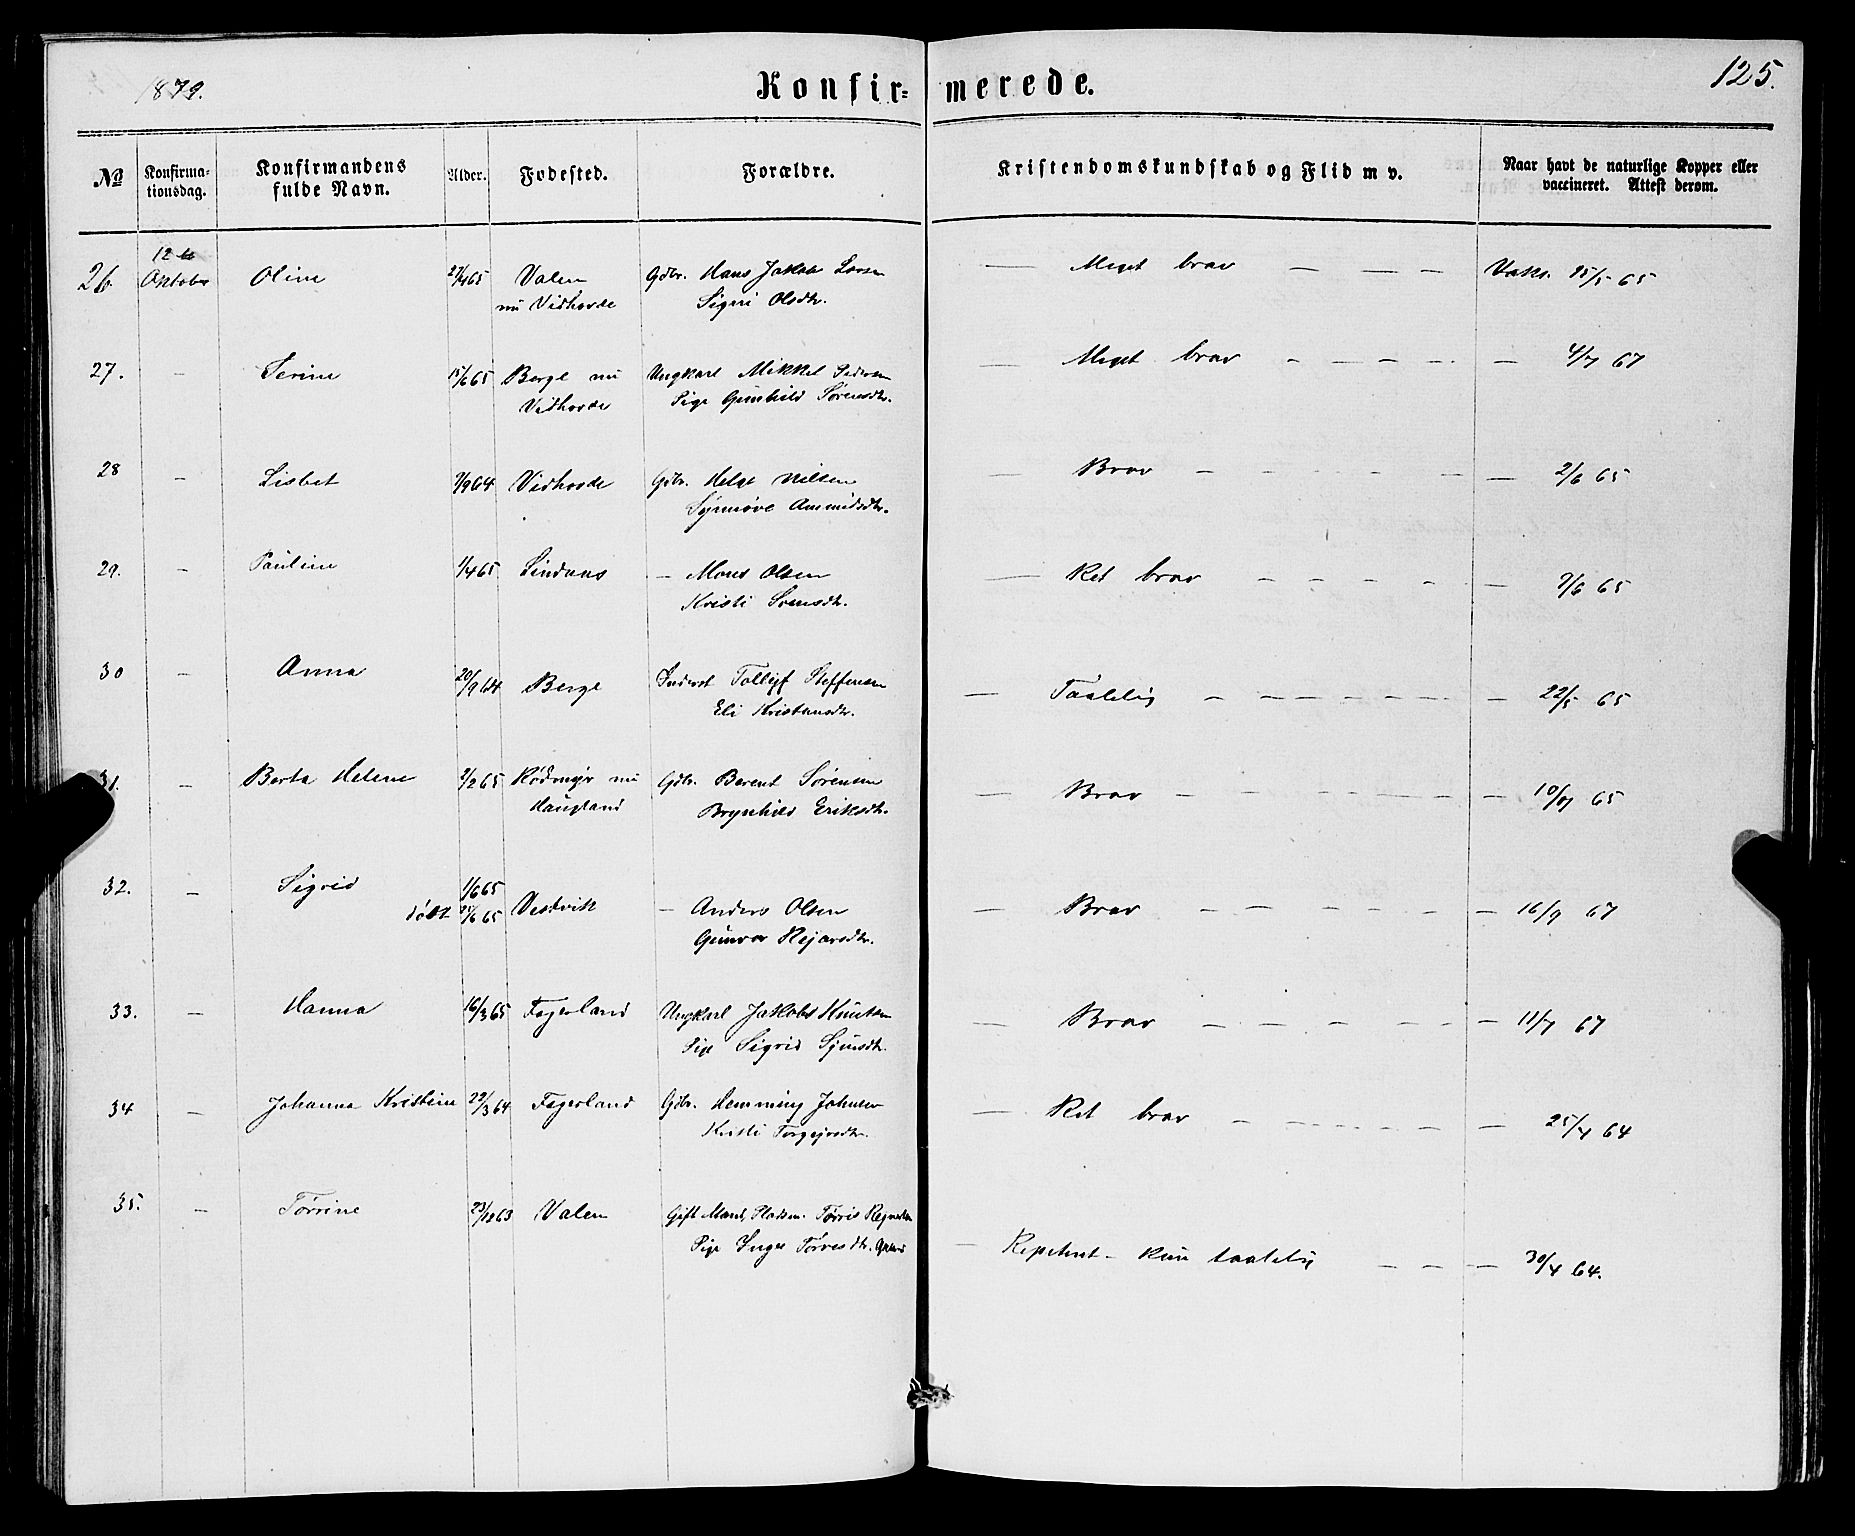 1879.
Konfir=merede.
125.
№
Konfirma-
tionsdag.
Konfirmandens
fulde Navn.
Alder.
Fødested.
Forældre.
Kristendomskundskab og Flid m v.
Naar havt de naturlige Kopper eller
vaccineret. Attest derom.
12te
26 Oktober Oline 27/4 65 Valen Gdbr. Hans Jakob Larsen — Meget brav — — — Vaks. 15/5 65
nu Vidhovde Sigri Olsdtr.
27. — Serine 15/6 65 Berge nu Ungkarl Mikkel Pedersen — Meget brav — — — — 4/7 67
Vidhovde Pige Gunhild Sørensdtr.
28 — Lisbet 7/9 64 Vidhovde Gdbr. Helge Nilsen — Brav — — — 2/6 65
Synnøve Ammundsdtr.
29. — Pauline 1/4 65 Lindaas — Mons Olsen — Ret brav — — — — 7/6 65
Kristi Svensdtr.
30 — Anna 20/9 64 Berge Inderst Tollejf Steffensen — Taalelig — — — — 22/5 65
Eli Kristensdtr.
31. — Berta Helene 2/2 65 Rødmyr nu Gdbr. Berent Sørensen — Brav — — — — 10/7 65
Haugland Brynhild Eriksdtr.
32. — Sigrid 1/6 65
døbt 25/6 65 Vestvik — Anders Olsen — Brav — — — — 16/9 67
Gunvor Rejarsdtr.
33. — Hanna 16/3 65 Fagerland Ungkarl Jakob Knutsen — Brav — — — — 11/7 67
Pige Sigrid Sjursdtr.
34 — Johanna Kristine 29/3 64 Fagerland Gdbr. Hemming Johnsen — Ret brav — — — — 25/4 64
Kristi Torgejrsdtr.
35. — Tørrine 23/12 63 Valen Gift Mand, Pladsm. Tørris — Repetent - kun taalelig — — — 30/4 64.
Pige Inger